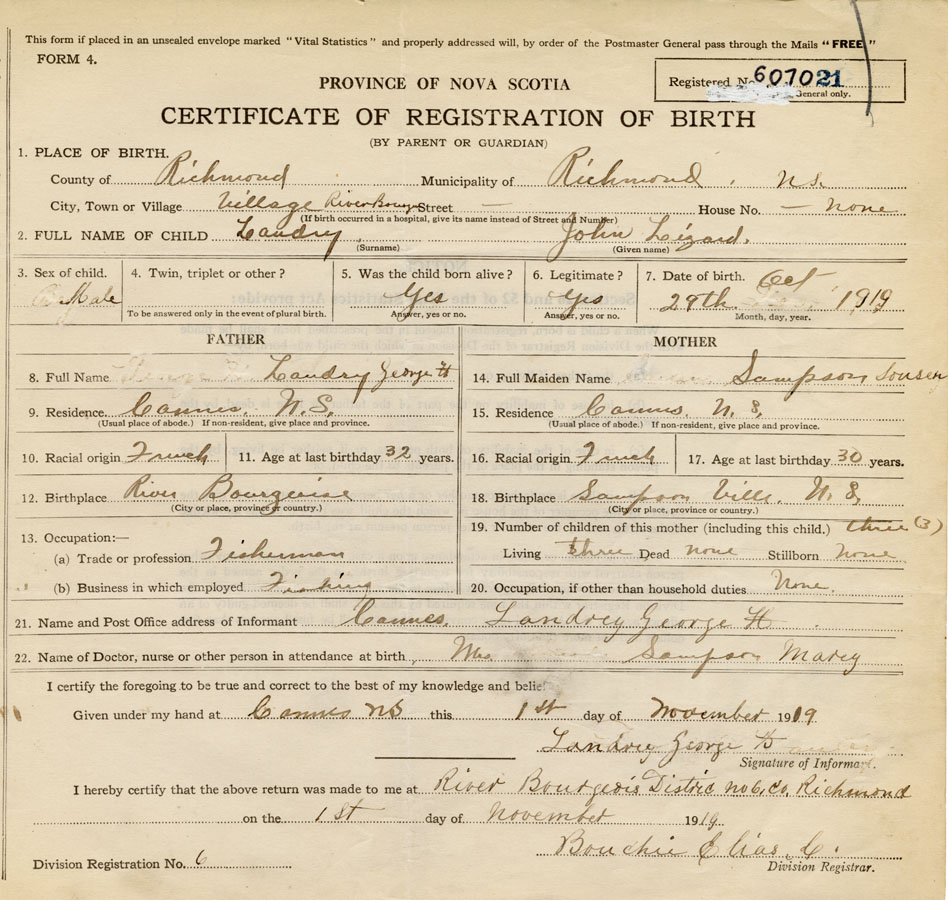 This form if placed in an unsealed envelope marked "Vital Statistics" and properly addressed will, by order of the Postmaster General pass through the Mails "FREE."
FORM 4.
Registered No 607021
General only.
PROVINCE OF NOVA SCOTIA
CERTIFICATE OF REGISTRATION OF BIRTH
(BY PARENT OR GUARDIAN)
1. PLACE OF BIRTH.
County of Richmond Municipality of Richmond, N.S.
City, Town or Village Village River Bourge Street — House No. — none
(If birth occurred in a hospital, give its name instead of Street and Number)
2. FULL NAME OF CHILD Landry, John Lézard.
(Surname) (Given name)
3. Sex of child. 4. Twin, triplet or other? 5. Was the child born alive? 6. Legitimate? 7. Date of birth. Oct
Male Yes Yes 29th 1919
To be answered only in the event of plural birth. Answer, yes or no. Answer, yes or no. Month, day, year.
FATHER MOTHER
8. Full Name Landry George H 14. Full Maiden Name Sampson
9. Residence Cannes, N.S. 15. Residence Cannes, N.S.
(Usual place of abode.) If non-resident, give place and province. (Usual place of abode.) If non-resident, give place and province.
10. Racial origin French 11. Age at last birthday 32 years. 16. Racial origin French 17. Age at last birthday 30 years.
12. Birthplace River Bourgeoise 18. Birthplace Sampson Ville, N.S.
(City or place, province or country.) (City or place, province or country.)
19. Number of children of this mother (including this child.) three (3)
13. Occupation:—
(a) Trade or profession Fisherman Living three Dead none Stillborn none
(b) Business in which employed Fishing 20. Occupation, if other than household duties None.
21. Name and Post Office address of Informant Cannes, Landrey George H.
22. Name of Doctor, nurse or other person in attendance at birth, Mrs Sampson Marey
I certify the foregoing to be true and correct to the best of my knowledge and belief
Given under my hand at Cannes NS this 1st day of November 1919
Landrey George H
Signature of Informant.
I hereby certify that the above return was made to me at River Bourgeois Distric no 6, Co. Richmond
on the 1st day of November 1919.
Bouchie Elias C.
Division Registration No. 6 Division Registrar.